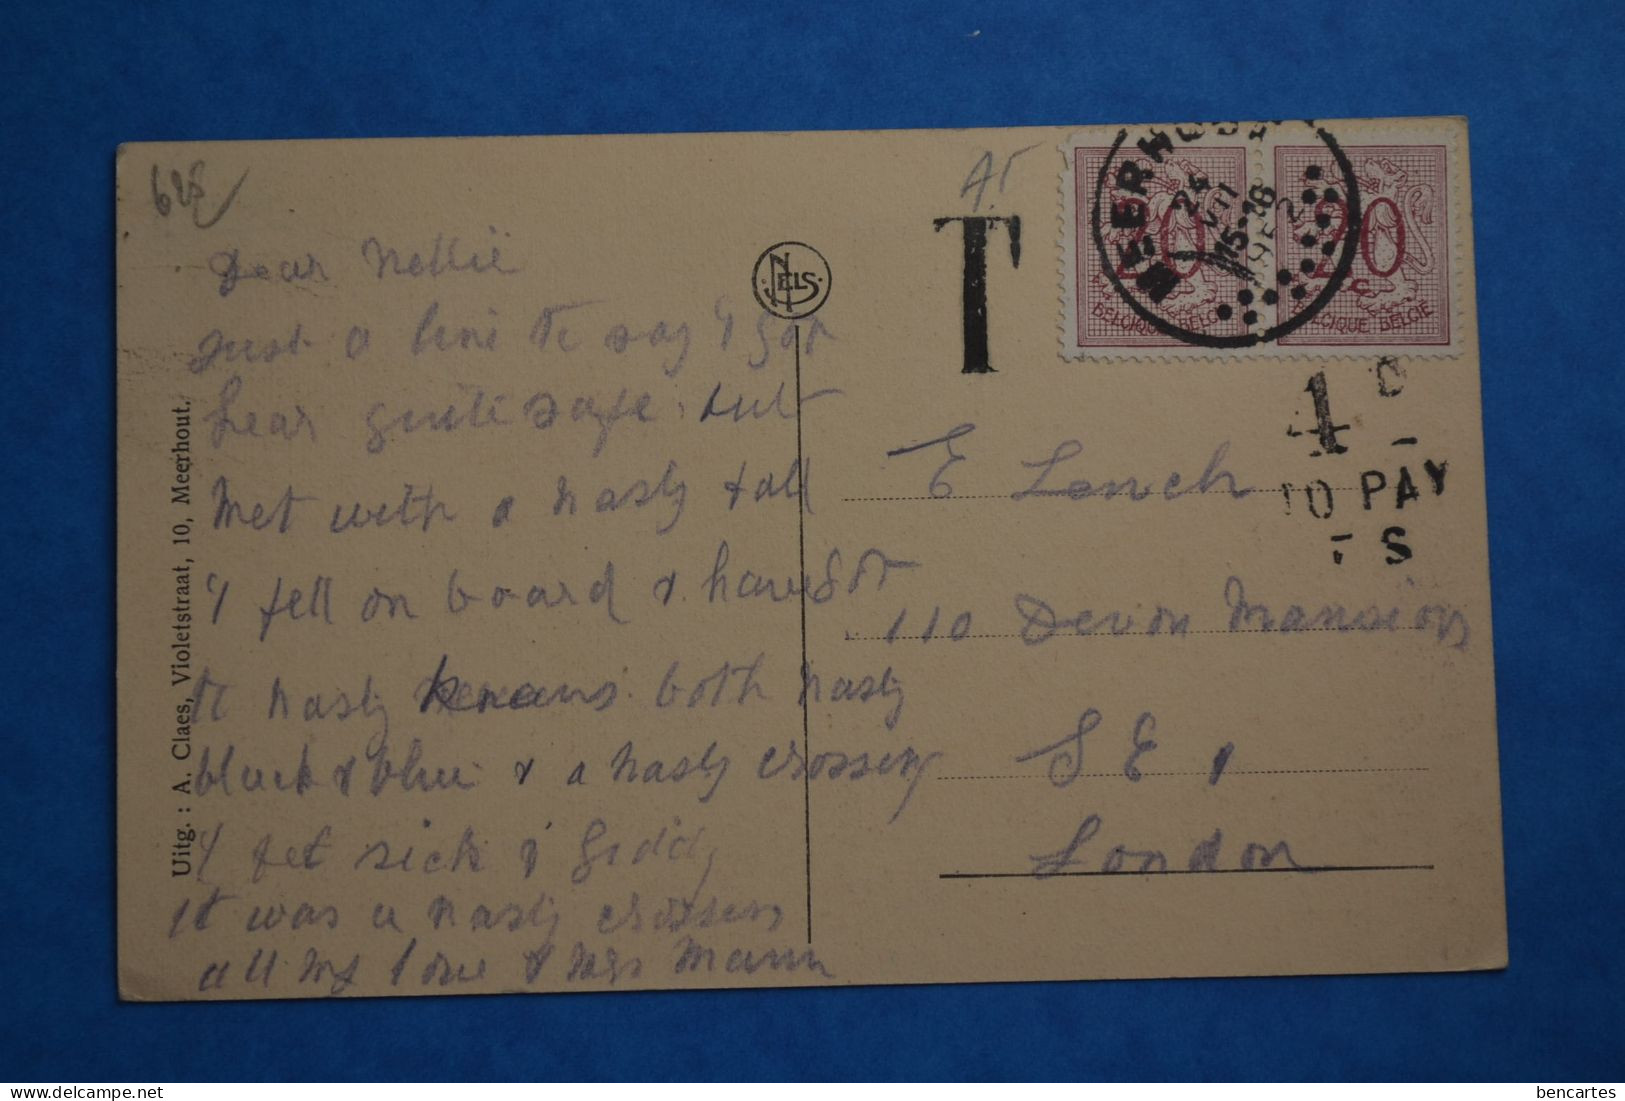 628
Dear Nellie
Just a line to say I got
hear quite safe but
Met with a nasty fall
I fell on board & have got
to nasty knees both nasty
black & blue & a nasty crossing
I felt sick & giddy
it was a nasty crossing
all my love & Mrs Mann
Uitg. : A. Claes, Violetstraat, 10, Meerhout.
NELS
T
MEERHOUT
24 VII 15-16
20 c
BELGIQUE BELGIË
20 c
BELGIQUE BELGIË
1D
TO PAY
FS
E Lench
110 Devon Mansions
S E 1
London
bencartes